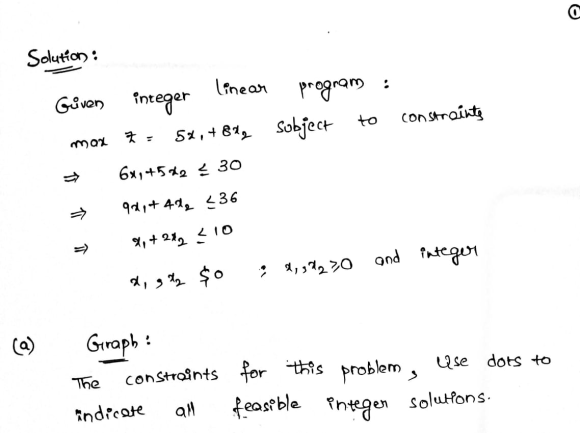 ①
Solution:
Given integer linear program :
max Z = 5x₁+8x₂ subject to constraints
⇒ 6x₁+5x₂ ≤ 30
⇒ 9x₁+4x₂ ≤36
⇒ x₁+2x₂ ≤10
x₁,x₂ $0 ; x₁,x₂≥0 and integer
(a) Graph :
The constraints for this problem, Use dots to
indicate all feasible integer solutions.